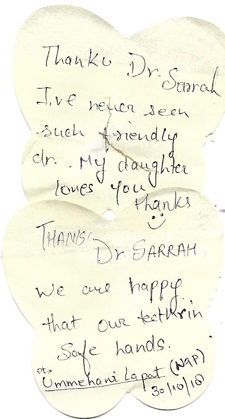 Thanku Dr.
Sarrah
I've never seen
such friendly
dr. My daughter
loves you
thanks
THANKS
Dr SARRAH
We are happy
that our teeth r in
Safe hands.
Ummehani Lapot (NAP)
30/10/10